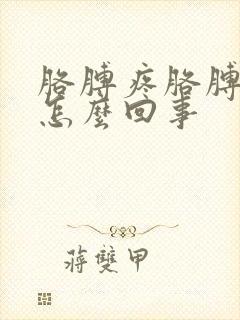 胳膊疼胳膊
怎麼回事
蔣雙甲